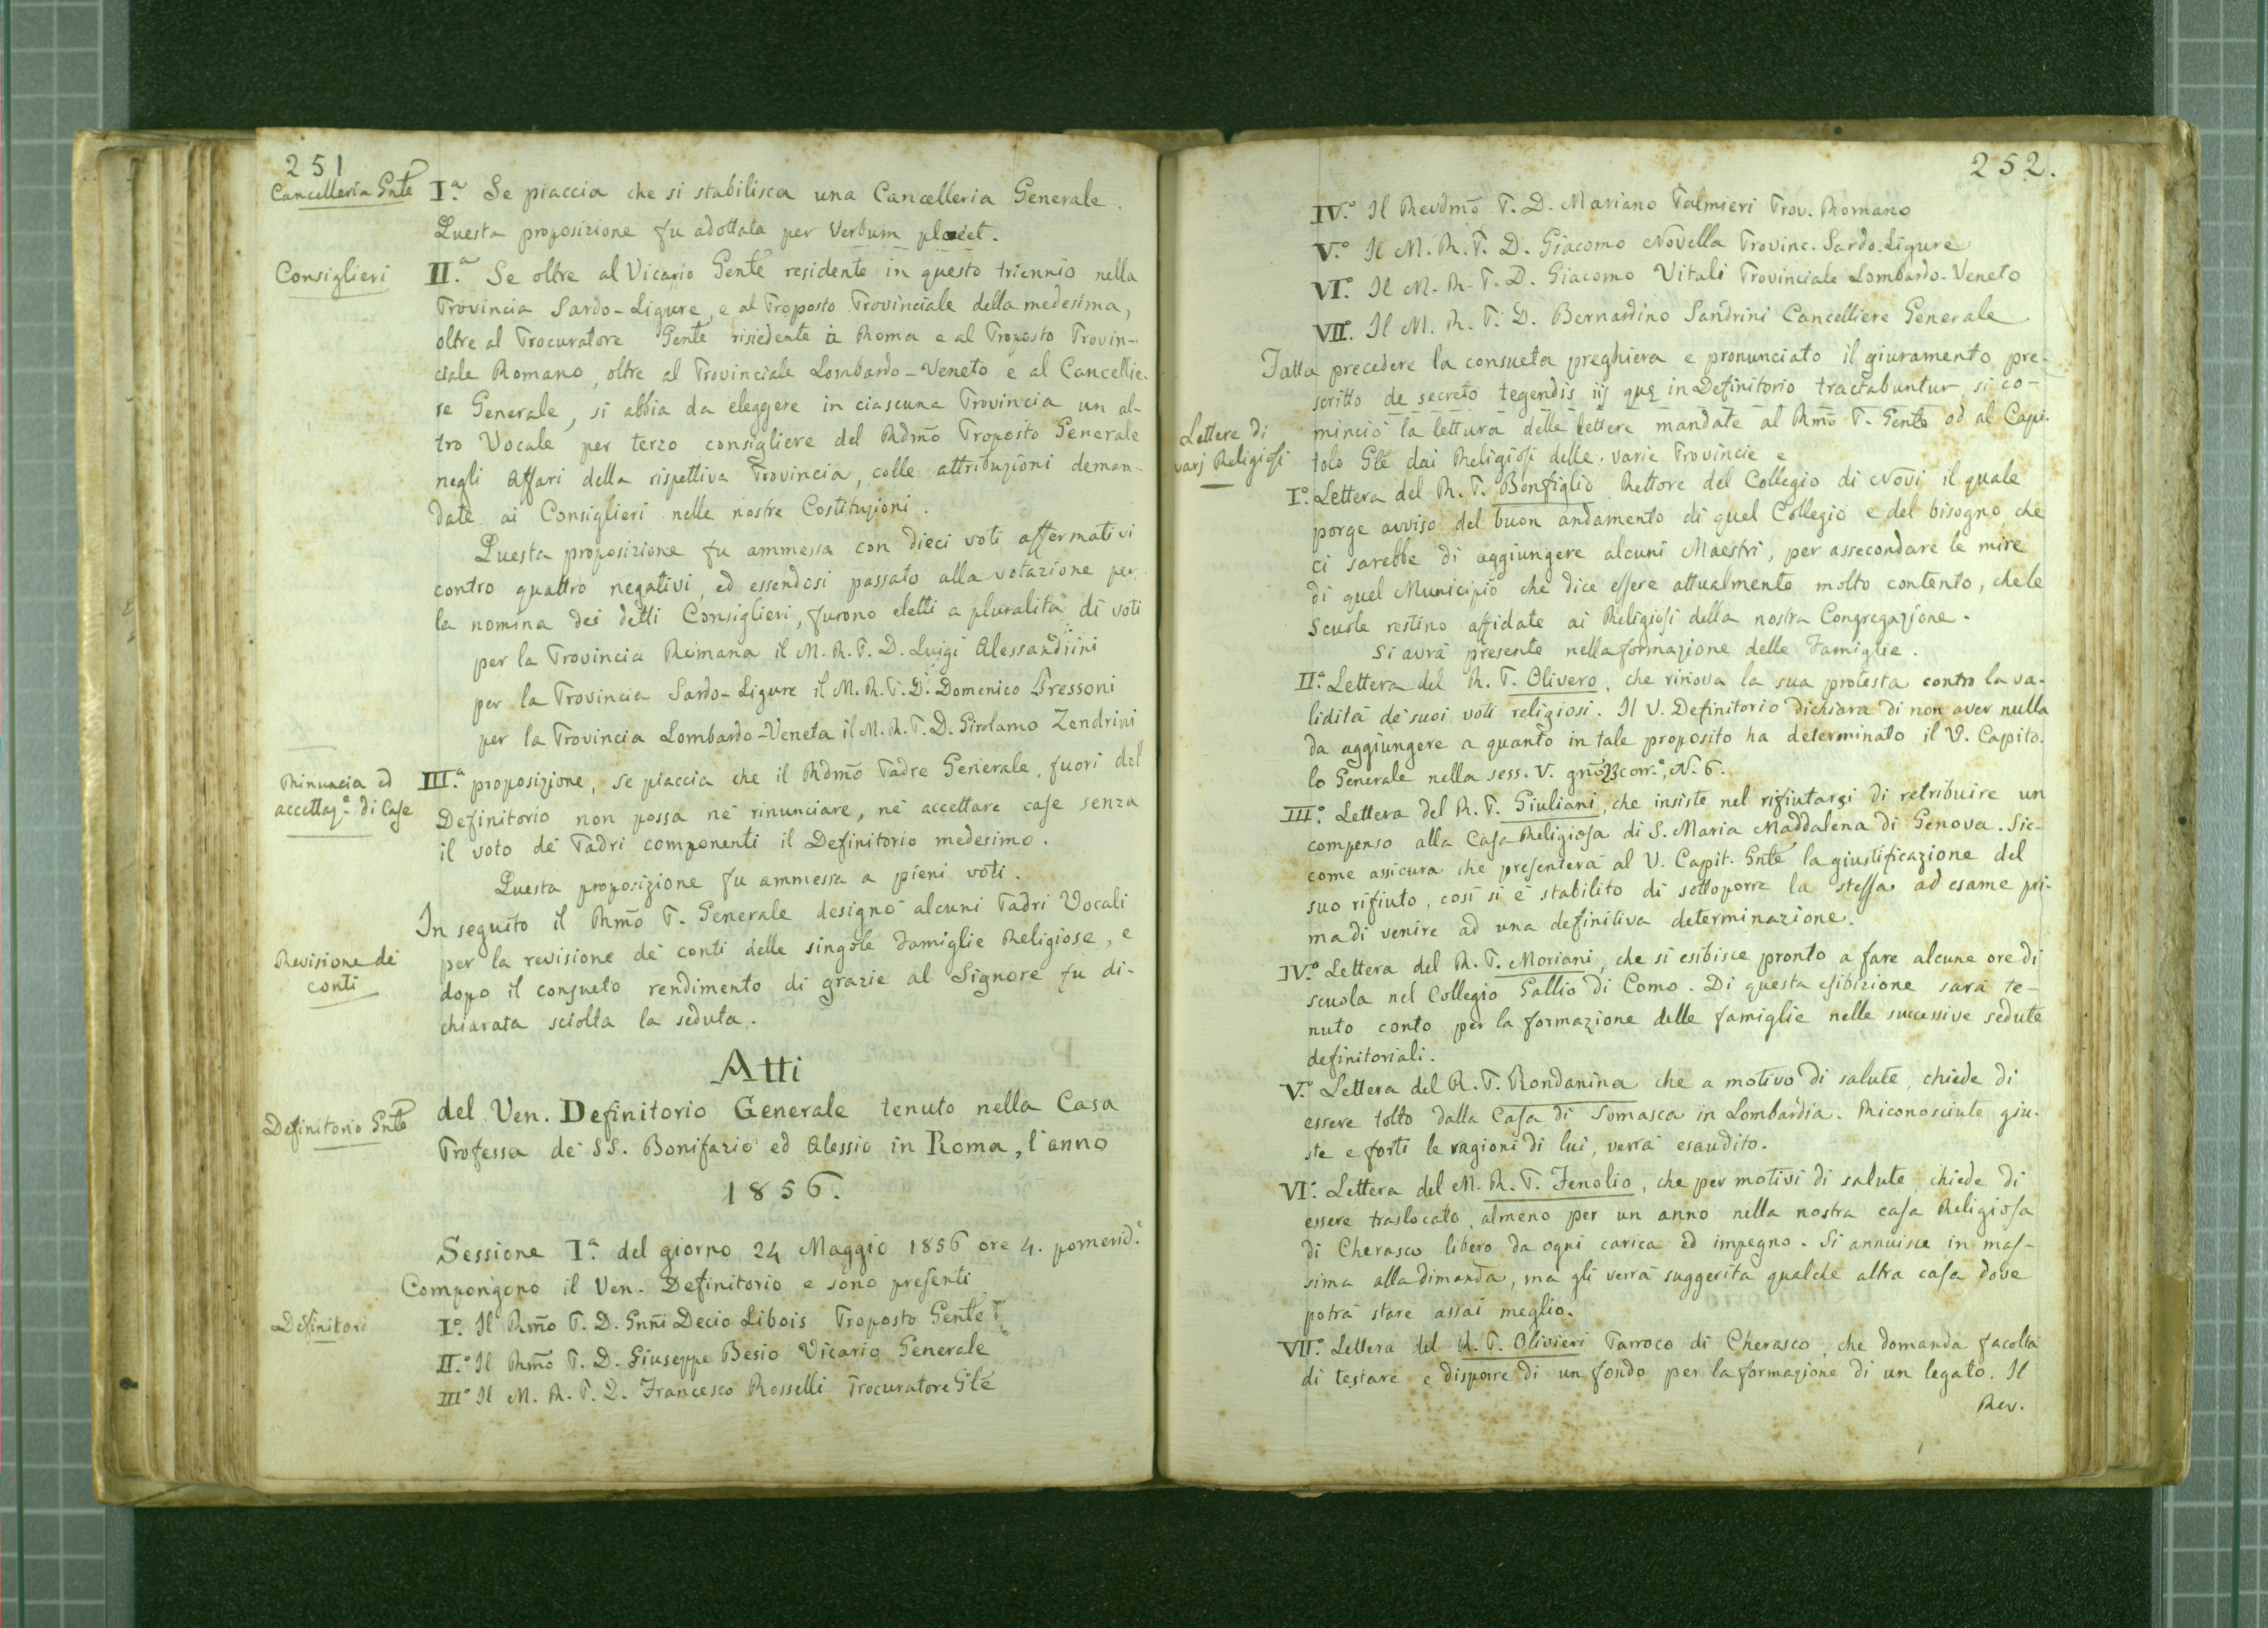 251
Cancelleria Gnle
I.a Se piaccia che si stabilisca una Cancelleria Generale.
Questa proposizione fu adottata per Verbum placet.
Consiglieri
II.a Se oltre al Vicario Genle residente in questo triennio nella
Provincia Sardo-Ligure, e al Proposto Provinciale della medesima,
oltre al Procuratore Genle risiedente a Roma e al Proposto Provin-
ciale Romano, oltre al Provinciale Lombardo-Veneto e al Cancellie-
re Generale, si abbia da eleggere in ciascuna Provincia un al-
tro Vocale per terzo consigliere del Rdmo Proposito Generale
negli Affari della rispettiva Provincia, colle attribuzioni deman-
date ai Consiglieri nelle nostre Costituzioni.
Questa proposizione fu ammessa con dieci voti affermativi
contro quattro negativi, ed essendosi passato alla votazione per
la nomina dei detti Consiglieri, furono eletti a pluralità di voti
per la Provincia Romana il M. R. P. D. Luigi Alessandrini
per la Provincia Sardo-Ligure il M. R. P. D. Domenico Pressoni
per la Provincia Lombardo-Veneta il M. R. P. D. Girolamo Zendrini
Rinuncia ed
accettaz.e di Case
III.a proposizione, se piaccia che il Rdmo Padre Generale, fuori del
Definitorio non possa nè rinunciare, nè accettare case senza
il voto de' Padri componenti il Definitorio medesimo.
Questa proposizione fu ammessa a pieni voti.
In seguito il Rmo P. Generale designò alcuni Padri Vocali
Revisione de'
conti
per la revisione de' conti delle singole Famiglie Religiose, e
dopo il consueto rendimento di grazie al Signore fu di-
chiarata sciolta la seduta.
Atti
Definitorio Gnle
del Ven. Definitorio Generale tenuto nella Casa
Professa de' SS. Bonifazio ed Alessio in Roma, l'anno
1856.
Sessione I.a del giorno 24 Maggio 1856 ore 4. pomerid.e
Compongono il Ven. Definitorio e sono presenti
Definitori
I.o Il Rmo P. D. Gnni Decio Libois Proposto Genle
II.o Il Rmo P. D. Giuseppe Besio Vicario Generale
III.o Il M. R. P. D. Francesco Rosselli Procuratore Gle
252.
IV.o Il Revdmo P. D. Mariano Palmieri Prov. Romano
V.o Il M. R. P. D. Giacomo Novella Provinc. Sardo-Ligure
VI.o Il M. R. P. D. Giacomo Vitali Provinciale Lombardo-Veneto
VII.o Il M. R. P. D. Bernardino Sandrini Cancelliere Generale
Fatta precedere la consueta preghiera e pronunciato il giuramento pre-
scritto de secreto tegendis iis quę in Definitorio tractabuntur, si co-
Lettere di
varj Religiosi
minciò la lettura delle lettere mandate al Rmo P. Genle od al Capi-
tolo Gle dai Religiosi delle varie Provincie e
I.o Lettera del R. P. Bonfiglio Rettore del Collegio di Novi il quale
porge avviso del buon andamento di quel Collegio e del bisogno che
ci sarebbe di aggiungere alcuni Maestri, per assecondare le mire
di quel Municipio che dice essere attualmente molto contento, che le
Scuole restino affidate ai Religiosi della nostra Congregazione.
Si avrà presente nella formazione delle Famiglie.
II.a Lettera del R. P. Olivero, che rinova la sua protesta contro la va-
lidità de' suoi voti religiosi. Il V. Definitorio dichiara di non aver nulla
da aggiungere a quanto in tale proposito ha determinato il V. Capito-
lo Generale nella sess. V. gno 23 corr.e, N.o 6.
III.o Lettera del R. P. Giuliani, che insiste nel rifiutarsi di retribuire un
compenso alla Casa Religiosa di S. Maria Maddalena di Genova. Sic-
come assicura che presenterà al V. Capit. Gnle la giustificazione del
suo rifiuto, così si è stabilito di sottoporre la stessa ad esame pri-
ma di venire ad una definitiva determinazione.
IV.o Lettera del R. P. Moriani, che si esibisce pronto a fare alcune ore di
scuola nel Collegio Gallio di Como. Di questa esibizione sarà te-
nuto conto per la formazione delle famiglie nelle successive sedute
definitoriali.
V.o Lettera del R. P. Rondanina che a motivo di salute, chiede di
essere tolto dalla Casa di Somasca in Lombardia. Riconosciute giu-
ste e forti le ragioni di lui, verrà esaudito.
VI.o Lettera del M. R. P. Fenolio, che per motivi di salute, chiede di
essere traslocato, almeno per un anno nella nostra casa Religiosa
di Cherasco libero da ogni carica ed impegno. Si annuisce in mas-
sima alla dimanda, ma gli verrà suggerita qualche altra casa dove
potrà stare assai meglio.
VII.o Lettera del R. P. Olivieri Parroco di Cherasco, che domanda facoltà
di testare e disporre di un fondo per la formazione di un legato. Il
Rev.